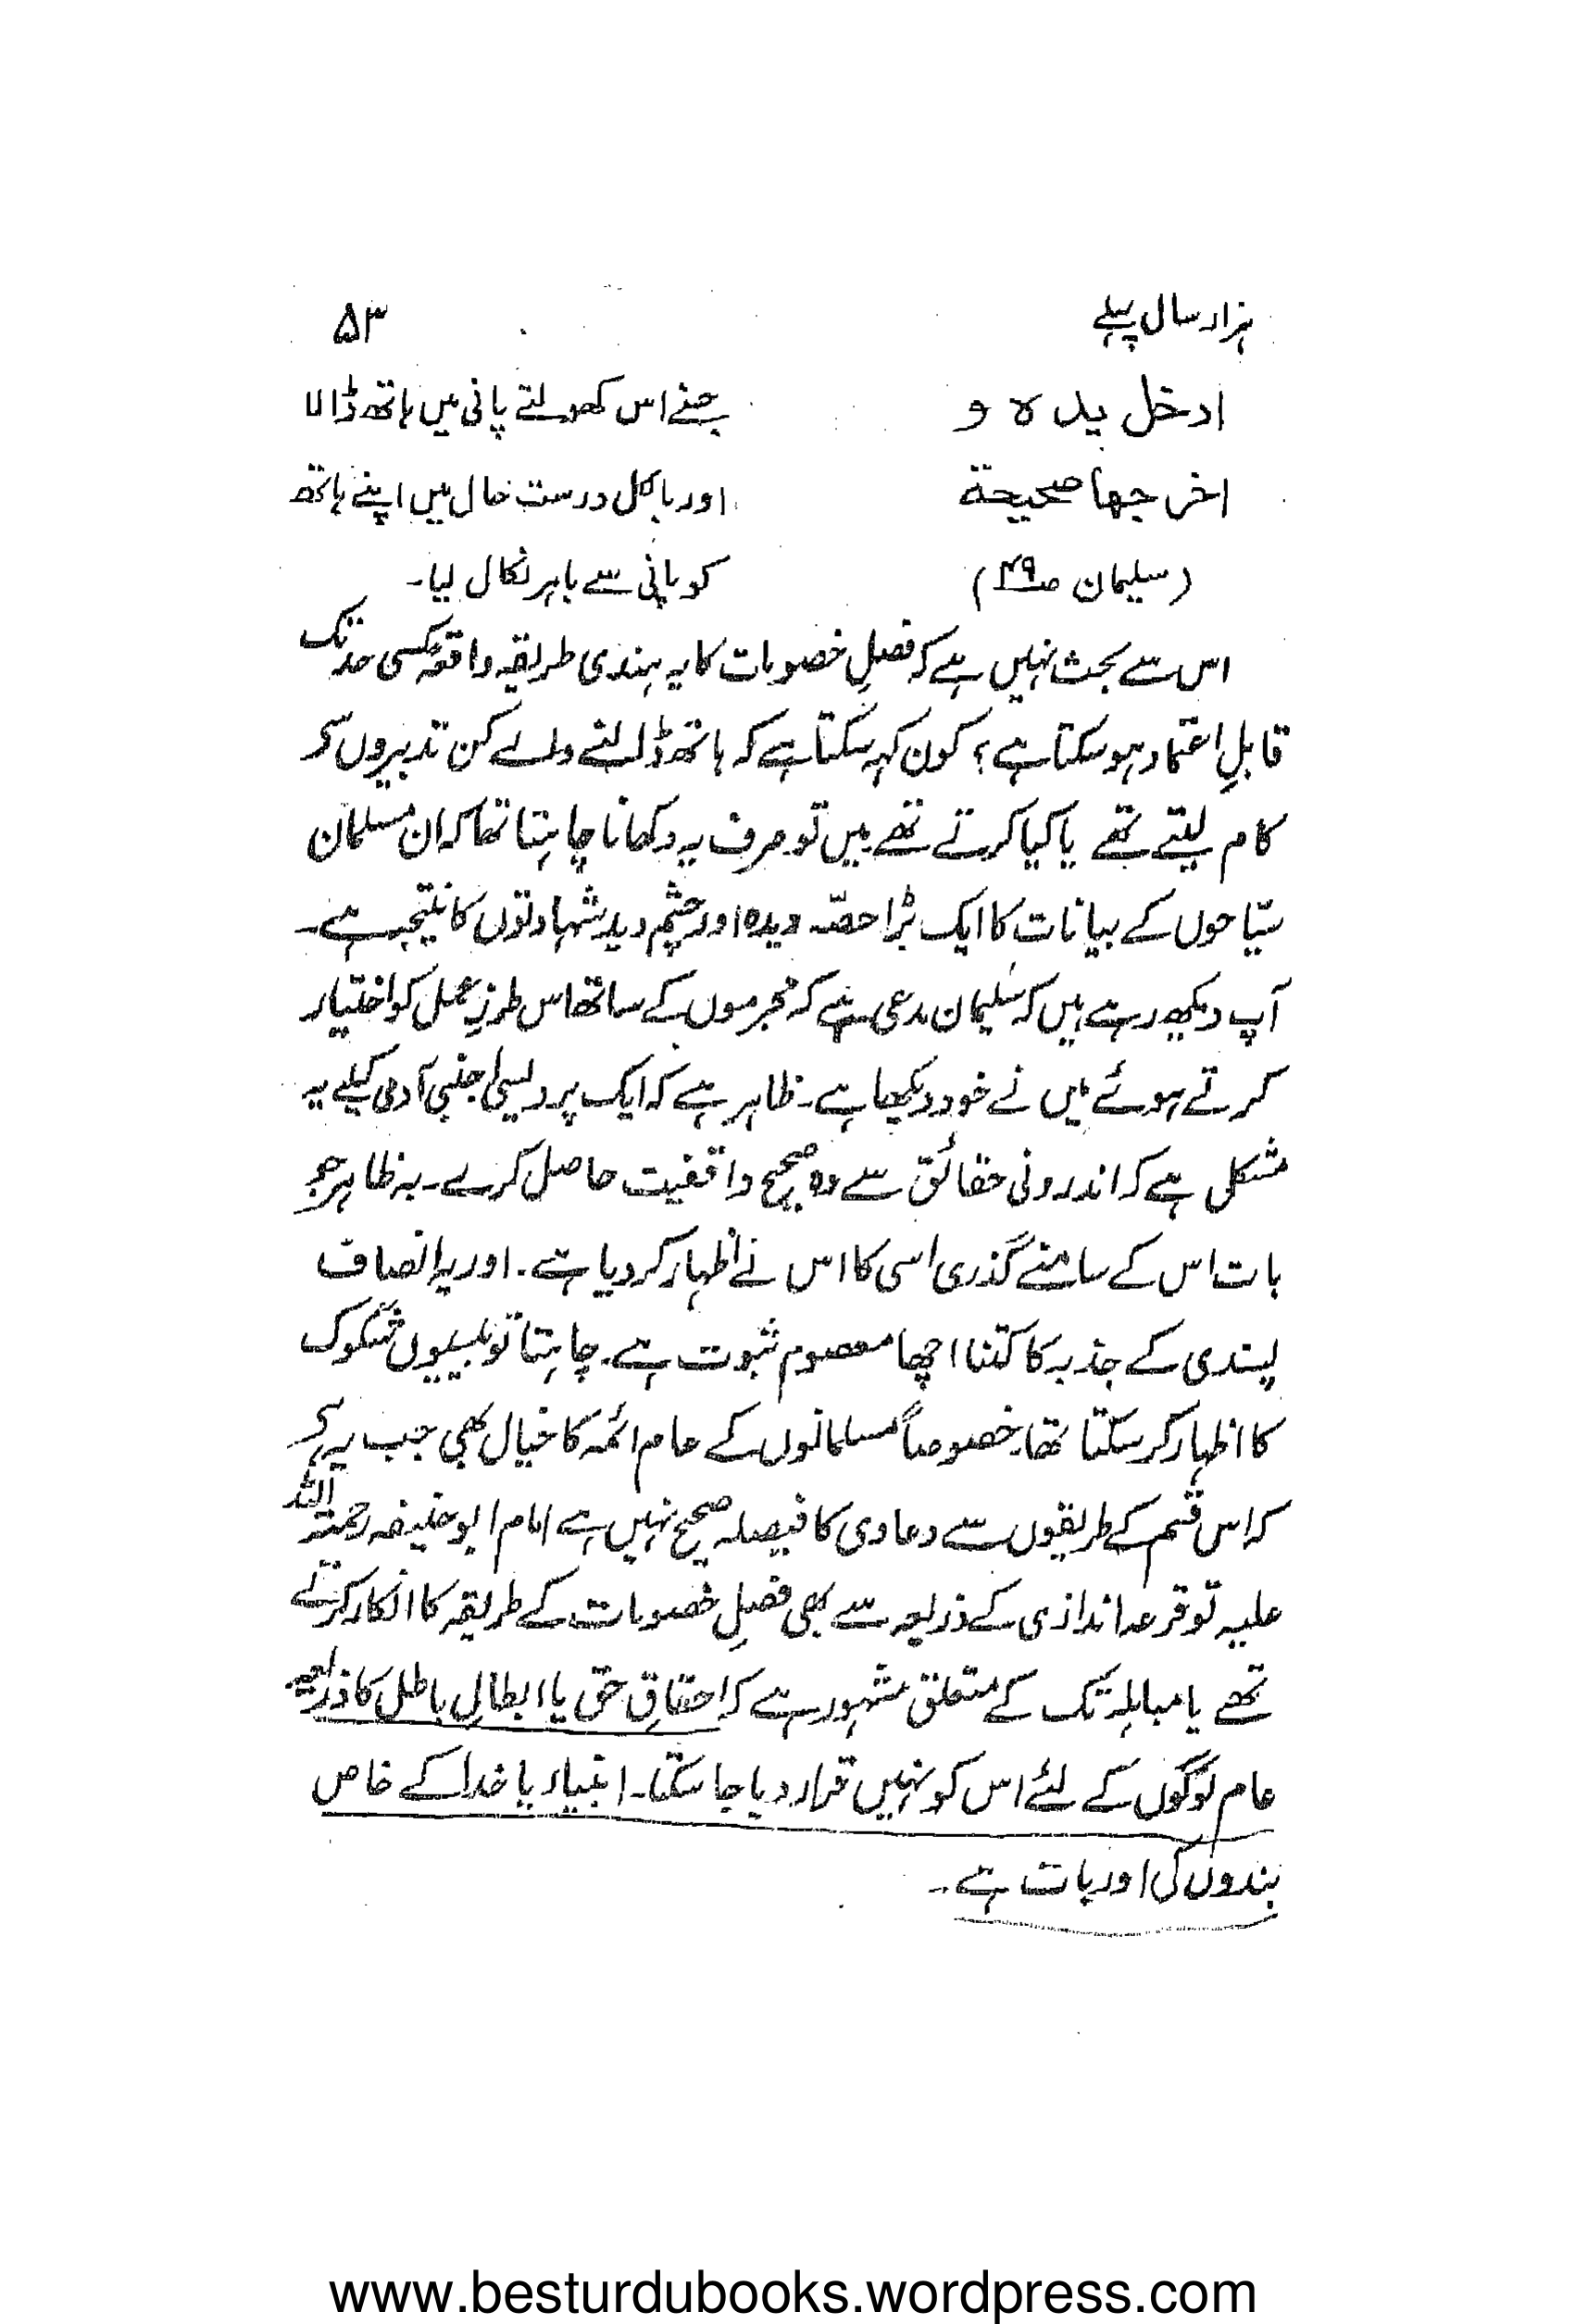 ہزار سال پہلے ۵۳
ادخل یدہ و جسنے اس کھولتے پانی میں ہاتھ ڈالا
اخرجھا صحیحة اور بالکل درست حال میں اپنے ہاتھ
(سلیمان صـ۴۹) کو پانی سے باہر نکال لیا۔
اس سے بحث نہیں ہے کہ فصلِ خصومات کا یہ ہندی طریقہ واقعۃً کسی حد تک
قابلِ اعتماد ہو سکتا ہے؟ کون کہہ سکتا ہے کہ ہاتھ ڈالنے والے کن تدبیروں سے
کام لیتے تھے یا کیا کرتے تھے میں تو صرف یہ دکھانا چاہتا تھا کہ ان مسلمان
سیّاحوں کے بیانات کا ایک بڑا حصّہ دیدہ اور چشم دید شہادتوں کا نتیجہ ہے۔
آپ دیکھ رہے ہیں کہ سلیمان مدعی ہے کہ مجرموں کے ساتھ اس طرزِ عمل کو اختیار
کرتے ہوئے میں نے خود دیکھا ہے۔ ظاہر ہے کہ ایک پردیسی اجنبی آدمی کیلئے یہ
مشکل ہے کہ اندرونی حقائق سے وہ صحیح واقفیت حاصل کرے۔ بہ ظاہر جو
بات اس کے سامنے گذری اسی کا اس نے اظہار کر دیا ہے۔ اور یہ انصاف
پسندی کے جذبہ کا کتنا اچھا معصوم ثبوت ہے۔ چاہتا تو بیسیوں شکوک
کا اظہار کر سکتا تھا۔ خصوصاً مسلمانوں کے عام ائمہ کا خیال بھی جب یہ ہے
کہ اس قسم کے طریقوں سے دعاوی کا فیصلہ صحیح نہیں ہے امام ابو حنیفہ رحمتہ اللہ
علیہ تو قرعہ اندازی کے ذریعہ سے بھی فصلِ خصومات کے طریقہ کا انکار کرتے
تھے یا مباہلہ تک کے متعلق مشہور ہے کہ احقاقِ حق یا ابطالِ باطل کا ذریعہ
عام لوگوں کے لئے اس کو نہیں قرار دیا جا سکتا۔ انبیاء یا خدا کے خاص
بندوں کی اور بات ہے۔
www.besturdubooks.wordpress.com